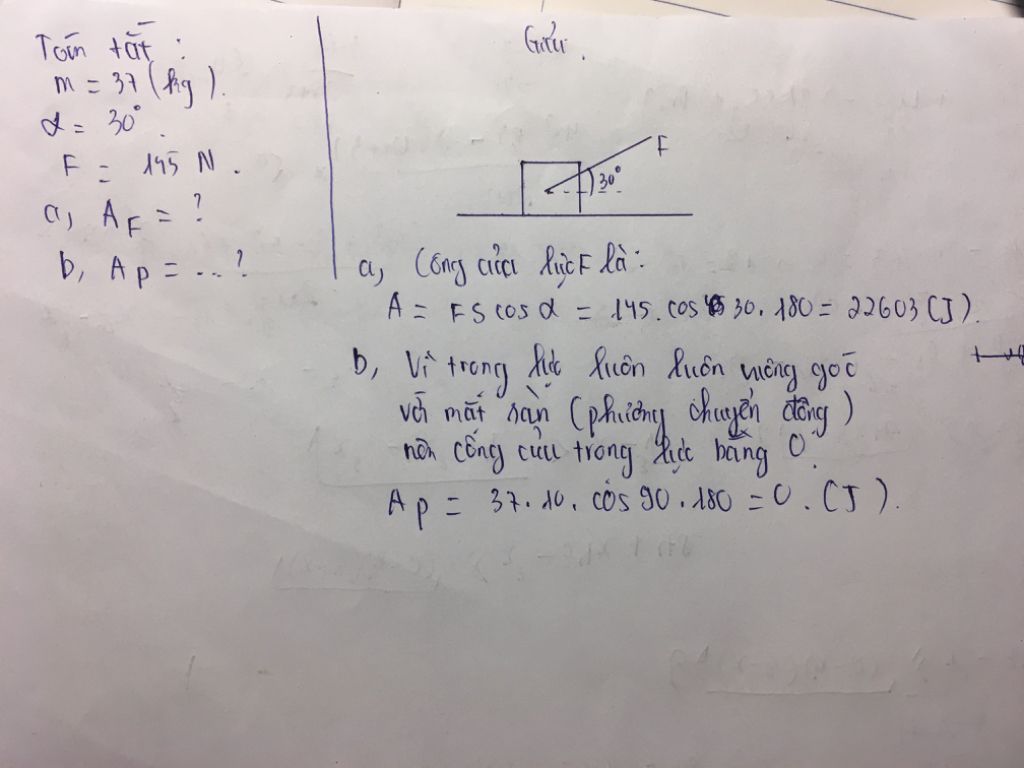 Tóm tắt :
m = 37 (kg).
α = 30°.
F = 145 N.
a, A_F = ?
b, A_P = ... ?
Giải.
F
30°
a, Công của lực F là:
A = F S cos α = 145. cos 30. 180 = 22603 (J).
b, Vì trọng lực luôn luôn vuông góc
với mặt sàn (phương chuyển động)
nên công của trọng lực bằng 0.
A_P = 37. 10. cos 90. 180 = 0. (J).